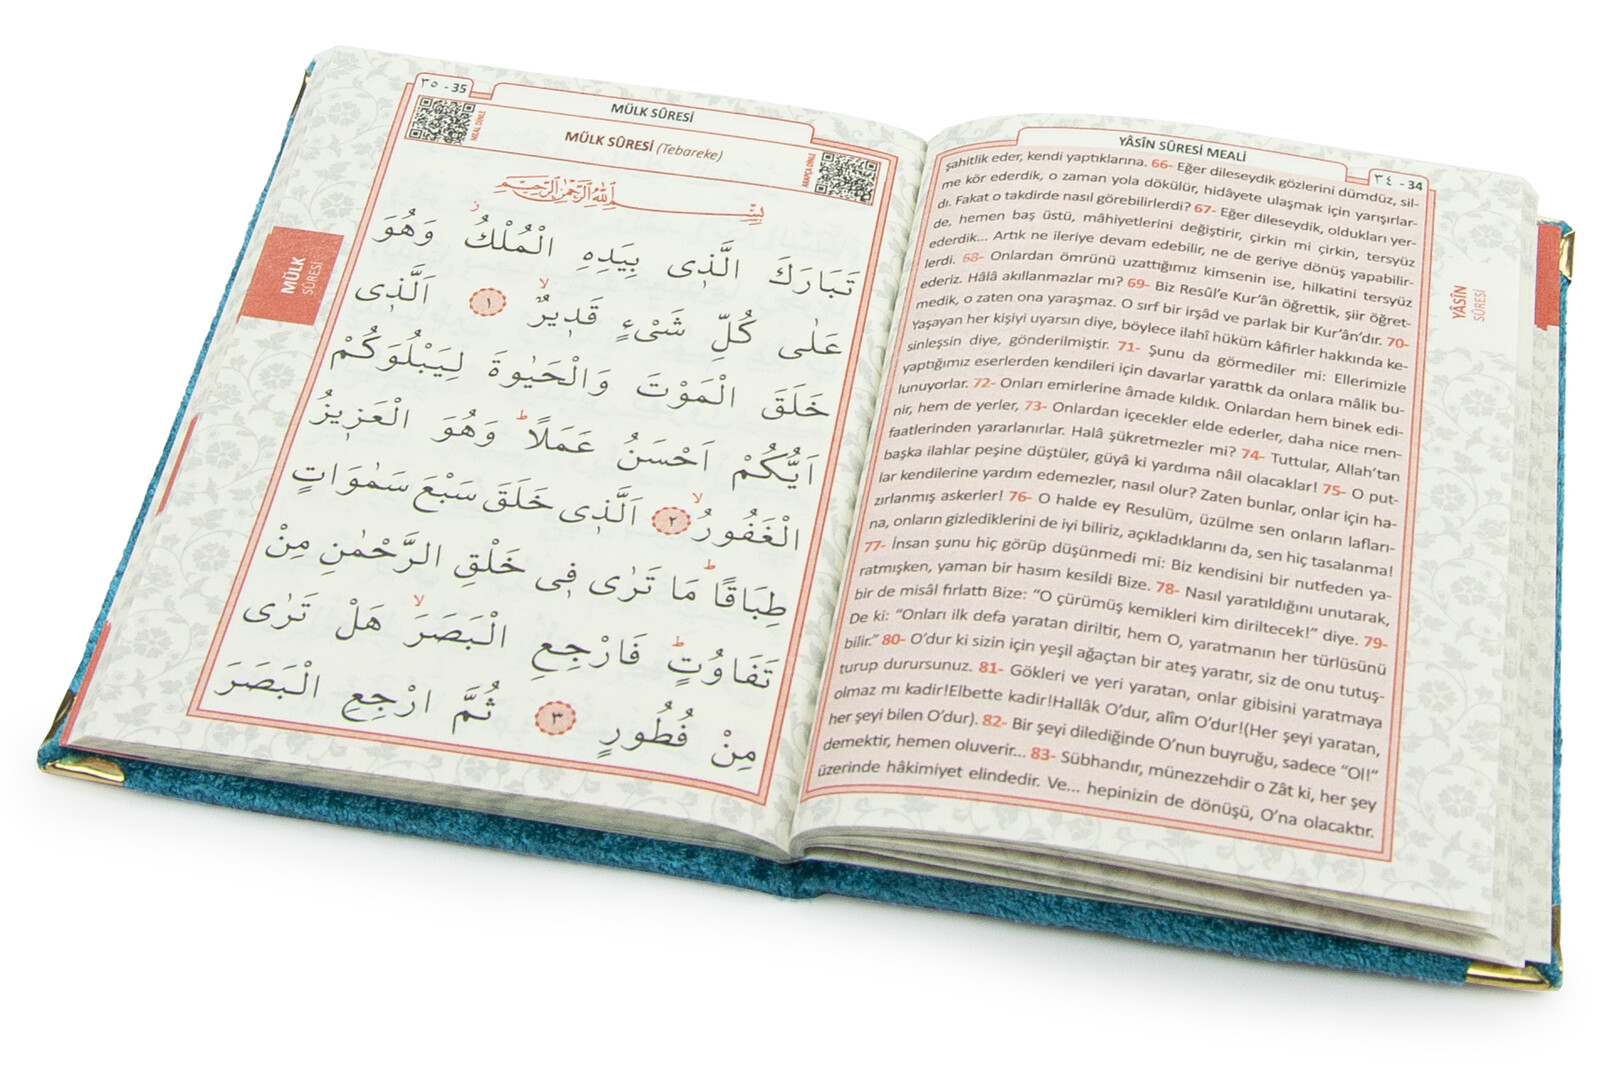 ٣٤ - 34
YÂSÎN SÛRESİ MEALİ
şahitlik eder, kendi yaptıklarına. 66- Eğer dileseydik gözlerini dümdüz, sil-
me kör ederdik, o zaman yola dökülür, hidâyete ulaşmak için yarışırlar-
dı. Fakat o takdirde nasıl görebilirlerdi? 67- Eğer dileseydik, oldukları yer-
de, hemen baş üstü, mâhiyetlerini değiştirir, çirkin mi çirkin, tersyüz
ederdik... Artık ne ileriye devam edebilir, ne de geriye dönüş yapabilir-
lerdi. 68- Onlardan ömrünü uzattığımız kimsenin ise, hilkatini tersyüz
ederiz. Hâlâ akıllanmazlar mı? 69- Biz Resûl’e Kur’ân öğrettik, şiir öğret-
medik, o zaten ona yaraşmaz. O sırf bir irşâd ve parlak bir Kur’ân’dır. 70-
Yaşayan her kişiyi uyarsın diye, böylece ilahî hüküm kâfirler hakkında ke-
sinleşsin diye, gönderilmiştir. 71- Şunu da görmediler mi: Ellerimizle
yaptığımız eserlerden kendileri için davarlar yarattık da onlara mâlik bu-
lunuyorlar. 72- Onları emirlerine âmade kıldık. Onlardan hem binek edi-
nir, hem de yerler, 73- Onlardan içecekler elde ederler, daha nice men-
faatlerinden yararlanırlar. Halâ şükretmezler mi? 74- Tuttular, Allah’tan
başka ilahlar peşine düştüler, güyâ ki yardıma nâil olacaklar! 75- O put-
lar kendilerine yardım edemezler, nasıl olur? Zaten bunlar, onlar için ha-
zırlanmış askerler! 76- O halde ey Resulüm, üzülme sen onların lafları-
na, onların gizlediklerini de iyi biliriz, açıkladıklarını da, sen hiç tasalanma!
77- İnsan şunu hiç görüp düşünmedi mi: Biz kendisini bir nutfeden ya-
ratmışken, yaman bir hasım kesildi Bize. 78- Nasıl yaratıldığını unutarak,
bir de misâl fırlattı Bize: “O çürümüş kemikleri kim diriltecek!” diye. 79-
De ki: “Onları ilk defa yaratan diriltir, hem O, yaratmanın her türlüsünü
bilir.” 80- O’dur ki sizin için yeşil ağaçtan bir ateş yaratır, siz de onu tutuş-
turup durursunuz. 81- Gökleri ve yeri yaratan, onlar gibisini yaratmaya
olmaz mı kadir!Elbette kadir!Hallâk O’dur, alîm O’dur!(Her şeyi yaratan,
her şeyi bilen O’dur). 82- Bir şeyi dilediğinde O’nun buyruğu, sadece “Ol!”
demektir, hemen oluverir... 83- Sübhandır, münezzehdir o Zât ki, her şey
üzerinde hâkimiyet elindedir. Ve... hepinizin de dönüşü, O’na olacaktır.
YÂSÎN
SÛRESİ
٣٥ - 35
MÜLK SÛRESİ
MEAL DİNLE
MÜLK SÛRESİ (Tebareke)
ARAPÇA DİNLE
بِسْمِ اللهِ الرَّحْمٰنِ الرَّحِيمِ
تَبَارَكَ الَّذٖى بِيَدِهِ الْمُلْكُ ز وَهُوَ
عَلٰى كُلِّ شَىْءٍ قَدٖيرٌ لا ١ اَلَّذٖى
خَلَقَ الْمَوْتَ وَالْحَيٰوةَ لِيَبْلُوَكُمْ
اَيُّكُمْ اَحْسَنُ عَمَلًا ط وَهُوَ الْعَزٖيزُ
الْغَفُورُ لا ٢ اَلَّذٖى خَلَقَ سَبْعَ سَمٰوَاتٍ
طِبَاقًا ط مَا تَرٰى فٖى خَلْقِ الرَّحْمٰنِ مِنْ
تَفَاوُتٍ ط فَارْجِعِ الْبَصَرَ لا هَلْ تَرٰى
مِنْ فُطُورٍ ٣ ثُمَّ ارْجِعِ الْبَصَرَ
MÜLK
SÛRESİ